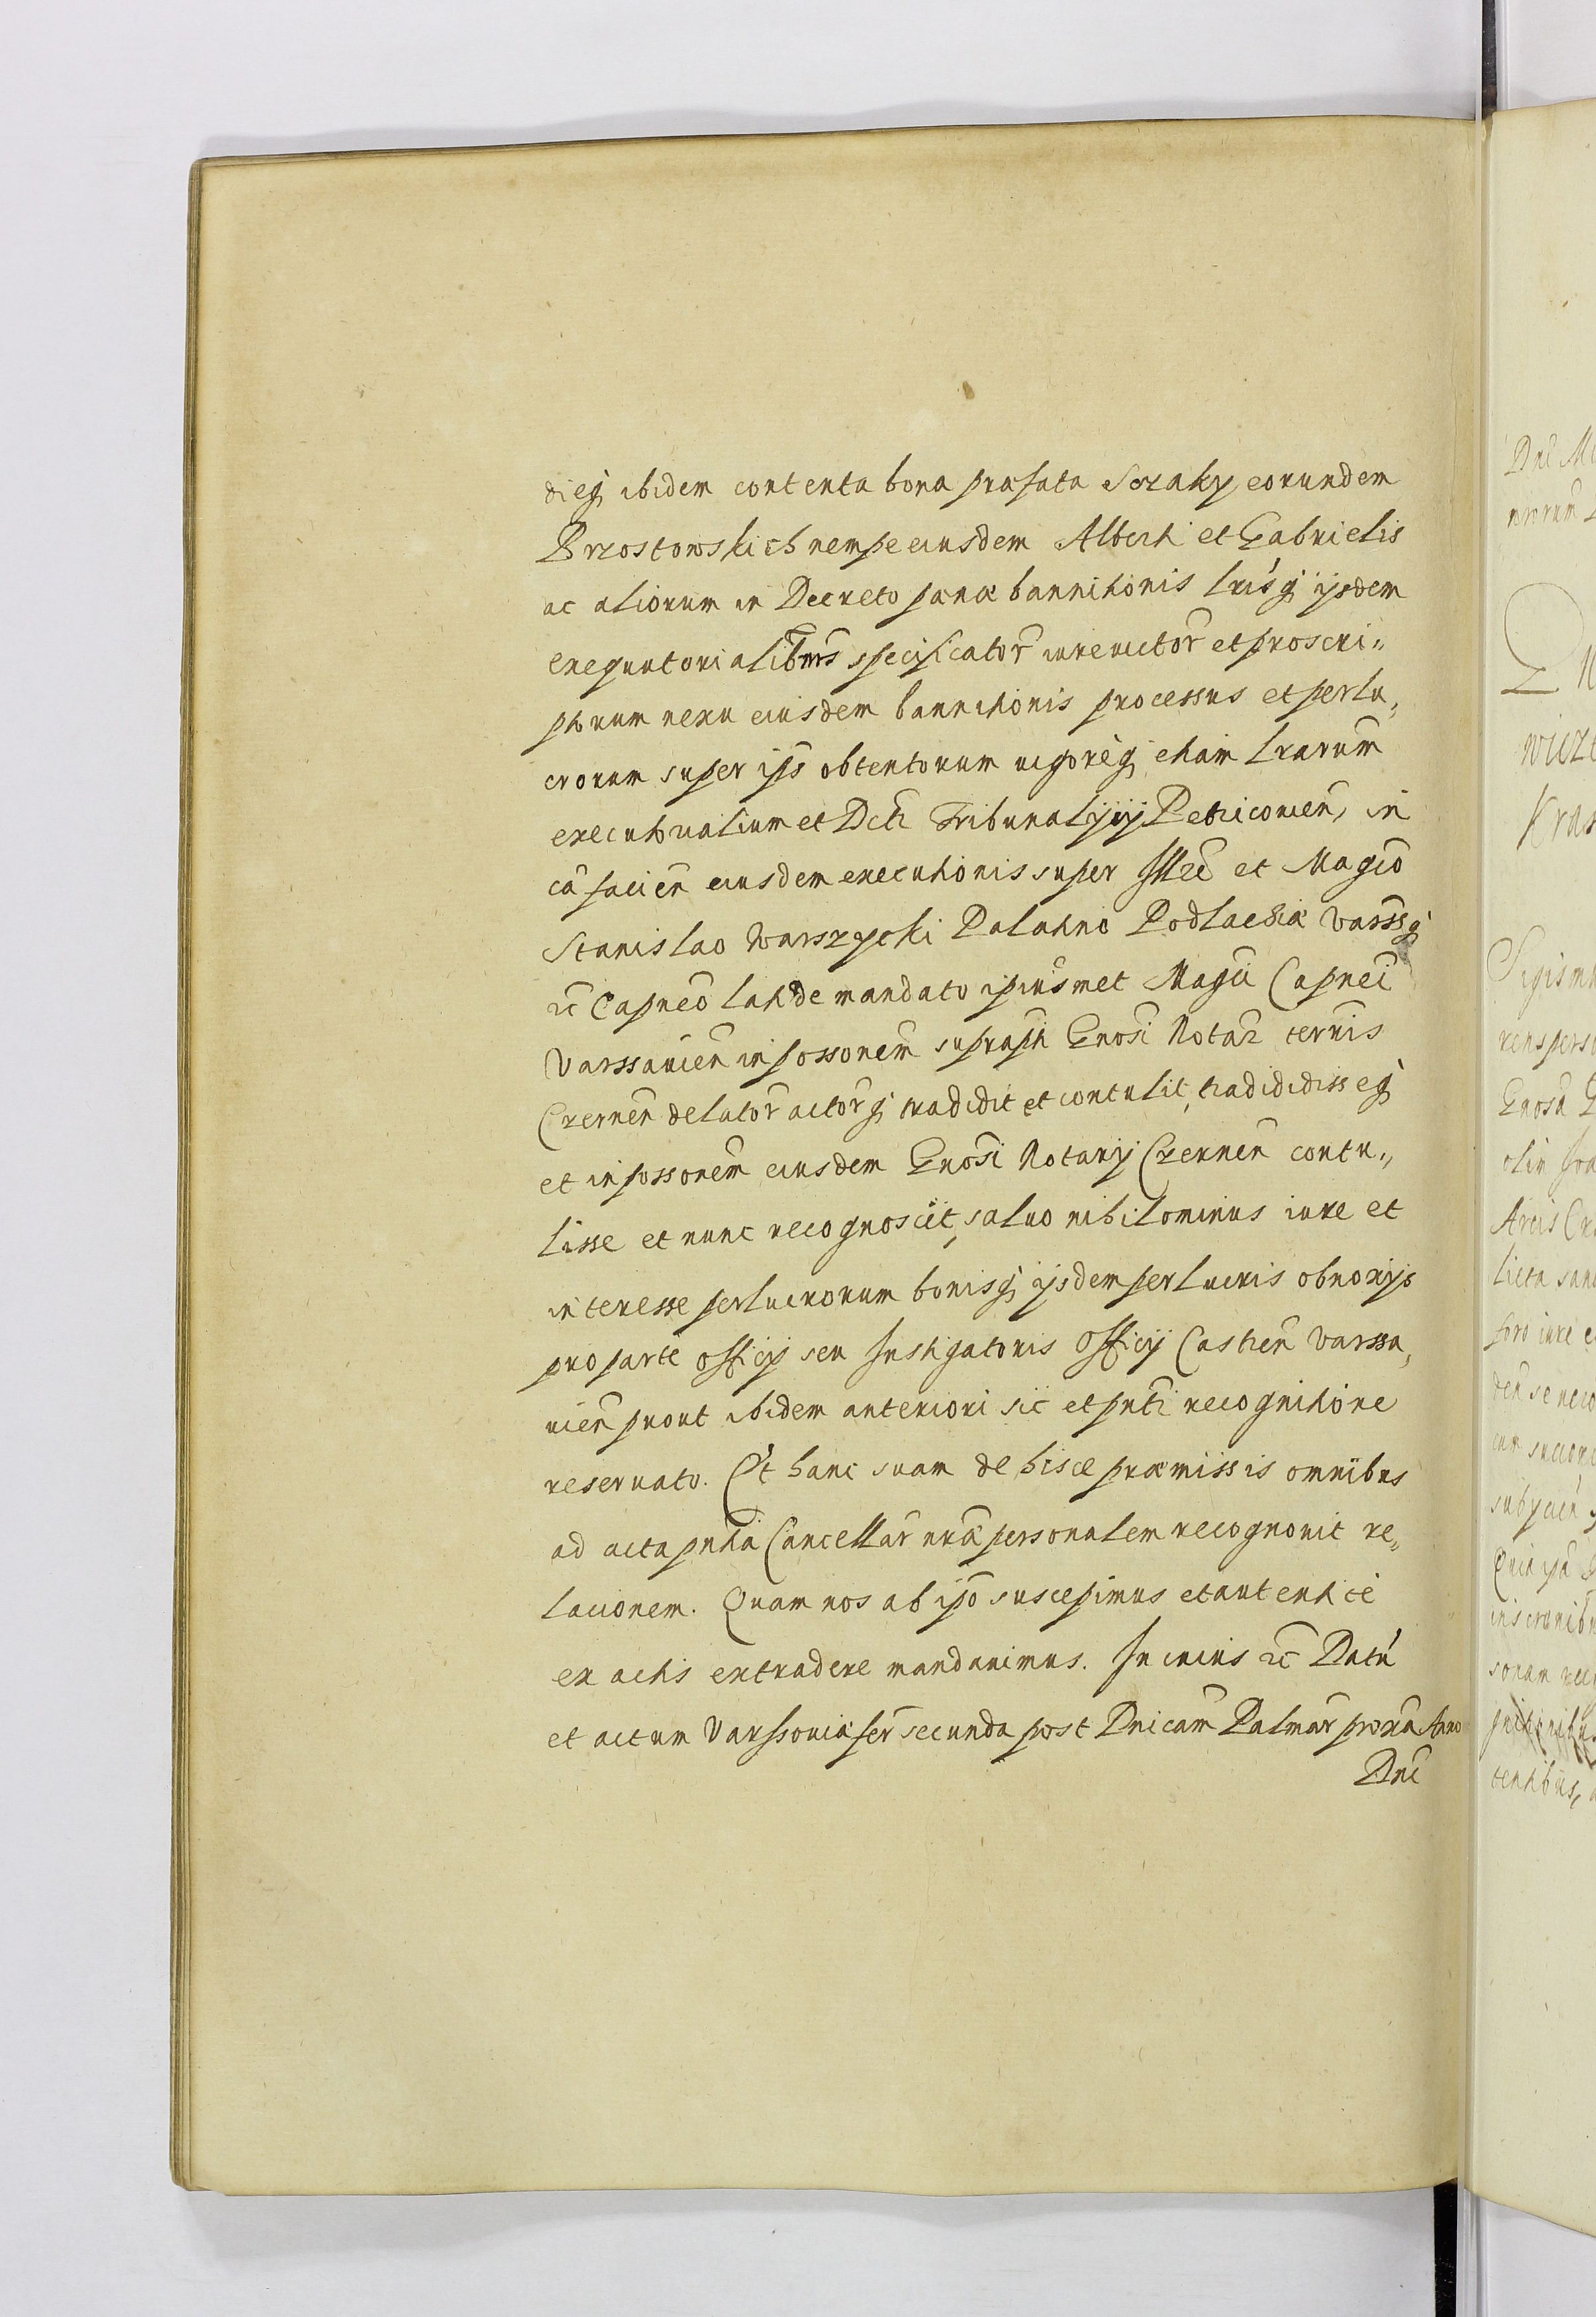 dieq ibidem contenta bona præfata Soraky eorundem
Brzostowskich nempe eiusdem Alberti et Gabrielis
ac aliorum in Decreto pænæ bannitionis lrisq ijsdem
exequutorialibus specificator iurevictor et proscri„
ptorum nexu eiusdem bannitionis processus et perlu„
crorum super ijs obtentorum vigoreq etiam lrarum
executorialium et Dcti Tribunalyij Petricovien, in
ea facien eiusdem executionis super Illre et Magco
Stanislao Warszycki Palatino Podlachiæ Varssq
ac Capneo lati de mandato ipiusmet Magci Capnei
Varssavien in possonem suprapti Gnosi Notar terris
Czernen delator actorq tradidit et contulit, tradididisseq
et in possonem eiusdem Gnosi Notarij Czernen contu„
lisse et nunc recognoscit, saluo nihilominus iure et
interesse perlucrorum bonisq ijsdem perlucris obnoxijs
pro parte officij seu Instigatoris Officij Castren Varssa„
vien prout ibidem anteriori sic et pnti recognitione
reservato. Et hanc suam de hisce præmissis omnibus
ad acta pntia Cancellar nræ personalem recognovit re„
lacionem. Quam nos ab ipo suscepimus et autentice
ex actis extradere mandavimus. In cuius rc Datu
et actum Varssoviæ fer secunda post Dnicam Palmar proxa Anno
Dni